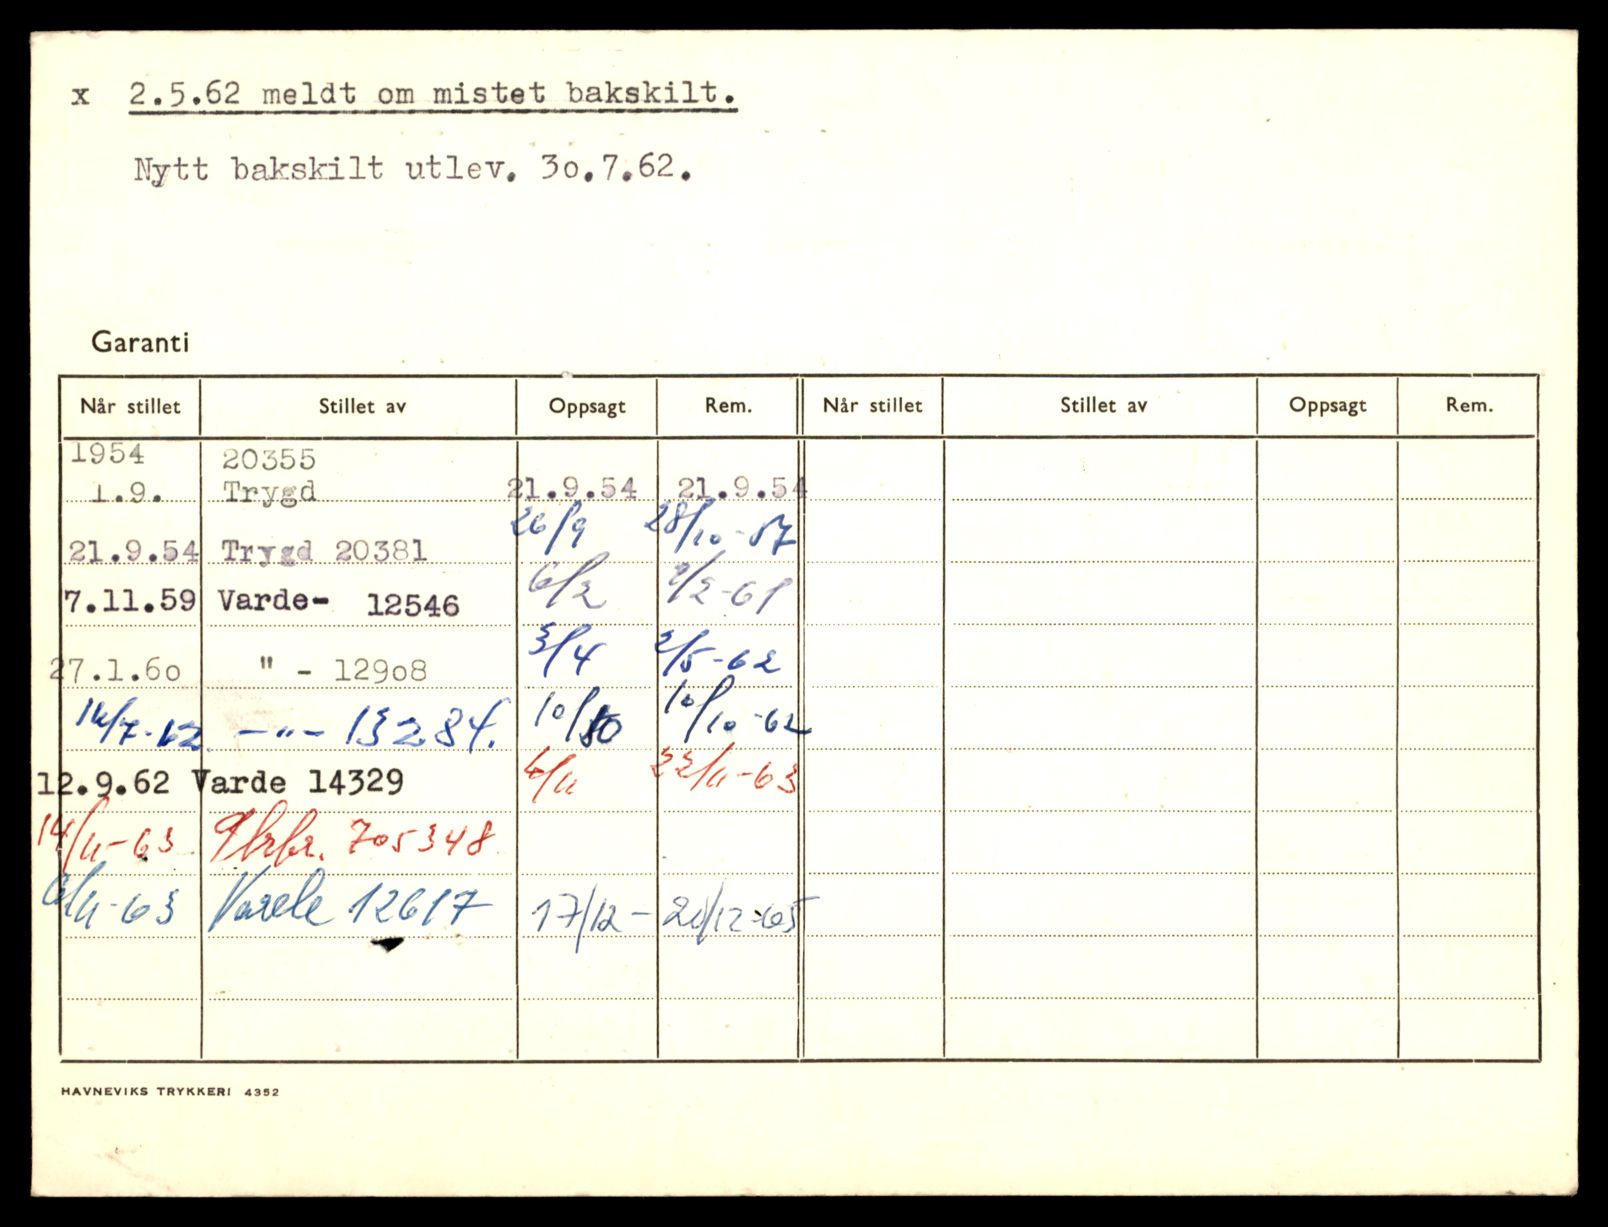 x 2.5.62 meldt om mistet bakskilt.
Nytt bakskilt utlev. 3o.7.62.
Garanti
Når stillet Stillet av Oppsagt Rem. Når stillet Stillet av Oppsagt Rem.
1954 20355
1.9. Trygd 21.9.54 21.9.54
21.9.54 Trygd 20381 26/9 28/10-57
7.11.59 Varde- 12546 6/2 9/2-61
27.1.6o " - 129o8 3/4 2/5-62
-"- 13284. 10/10 10/10-62
12.9.62 Varde 14329 4/11 22/11-63
14/11-63 705348
6/11-63 Varde 12617 17/12- 20/12-65
HAVNEVIKS TRYKKERI 4352